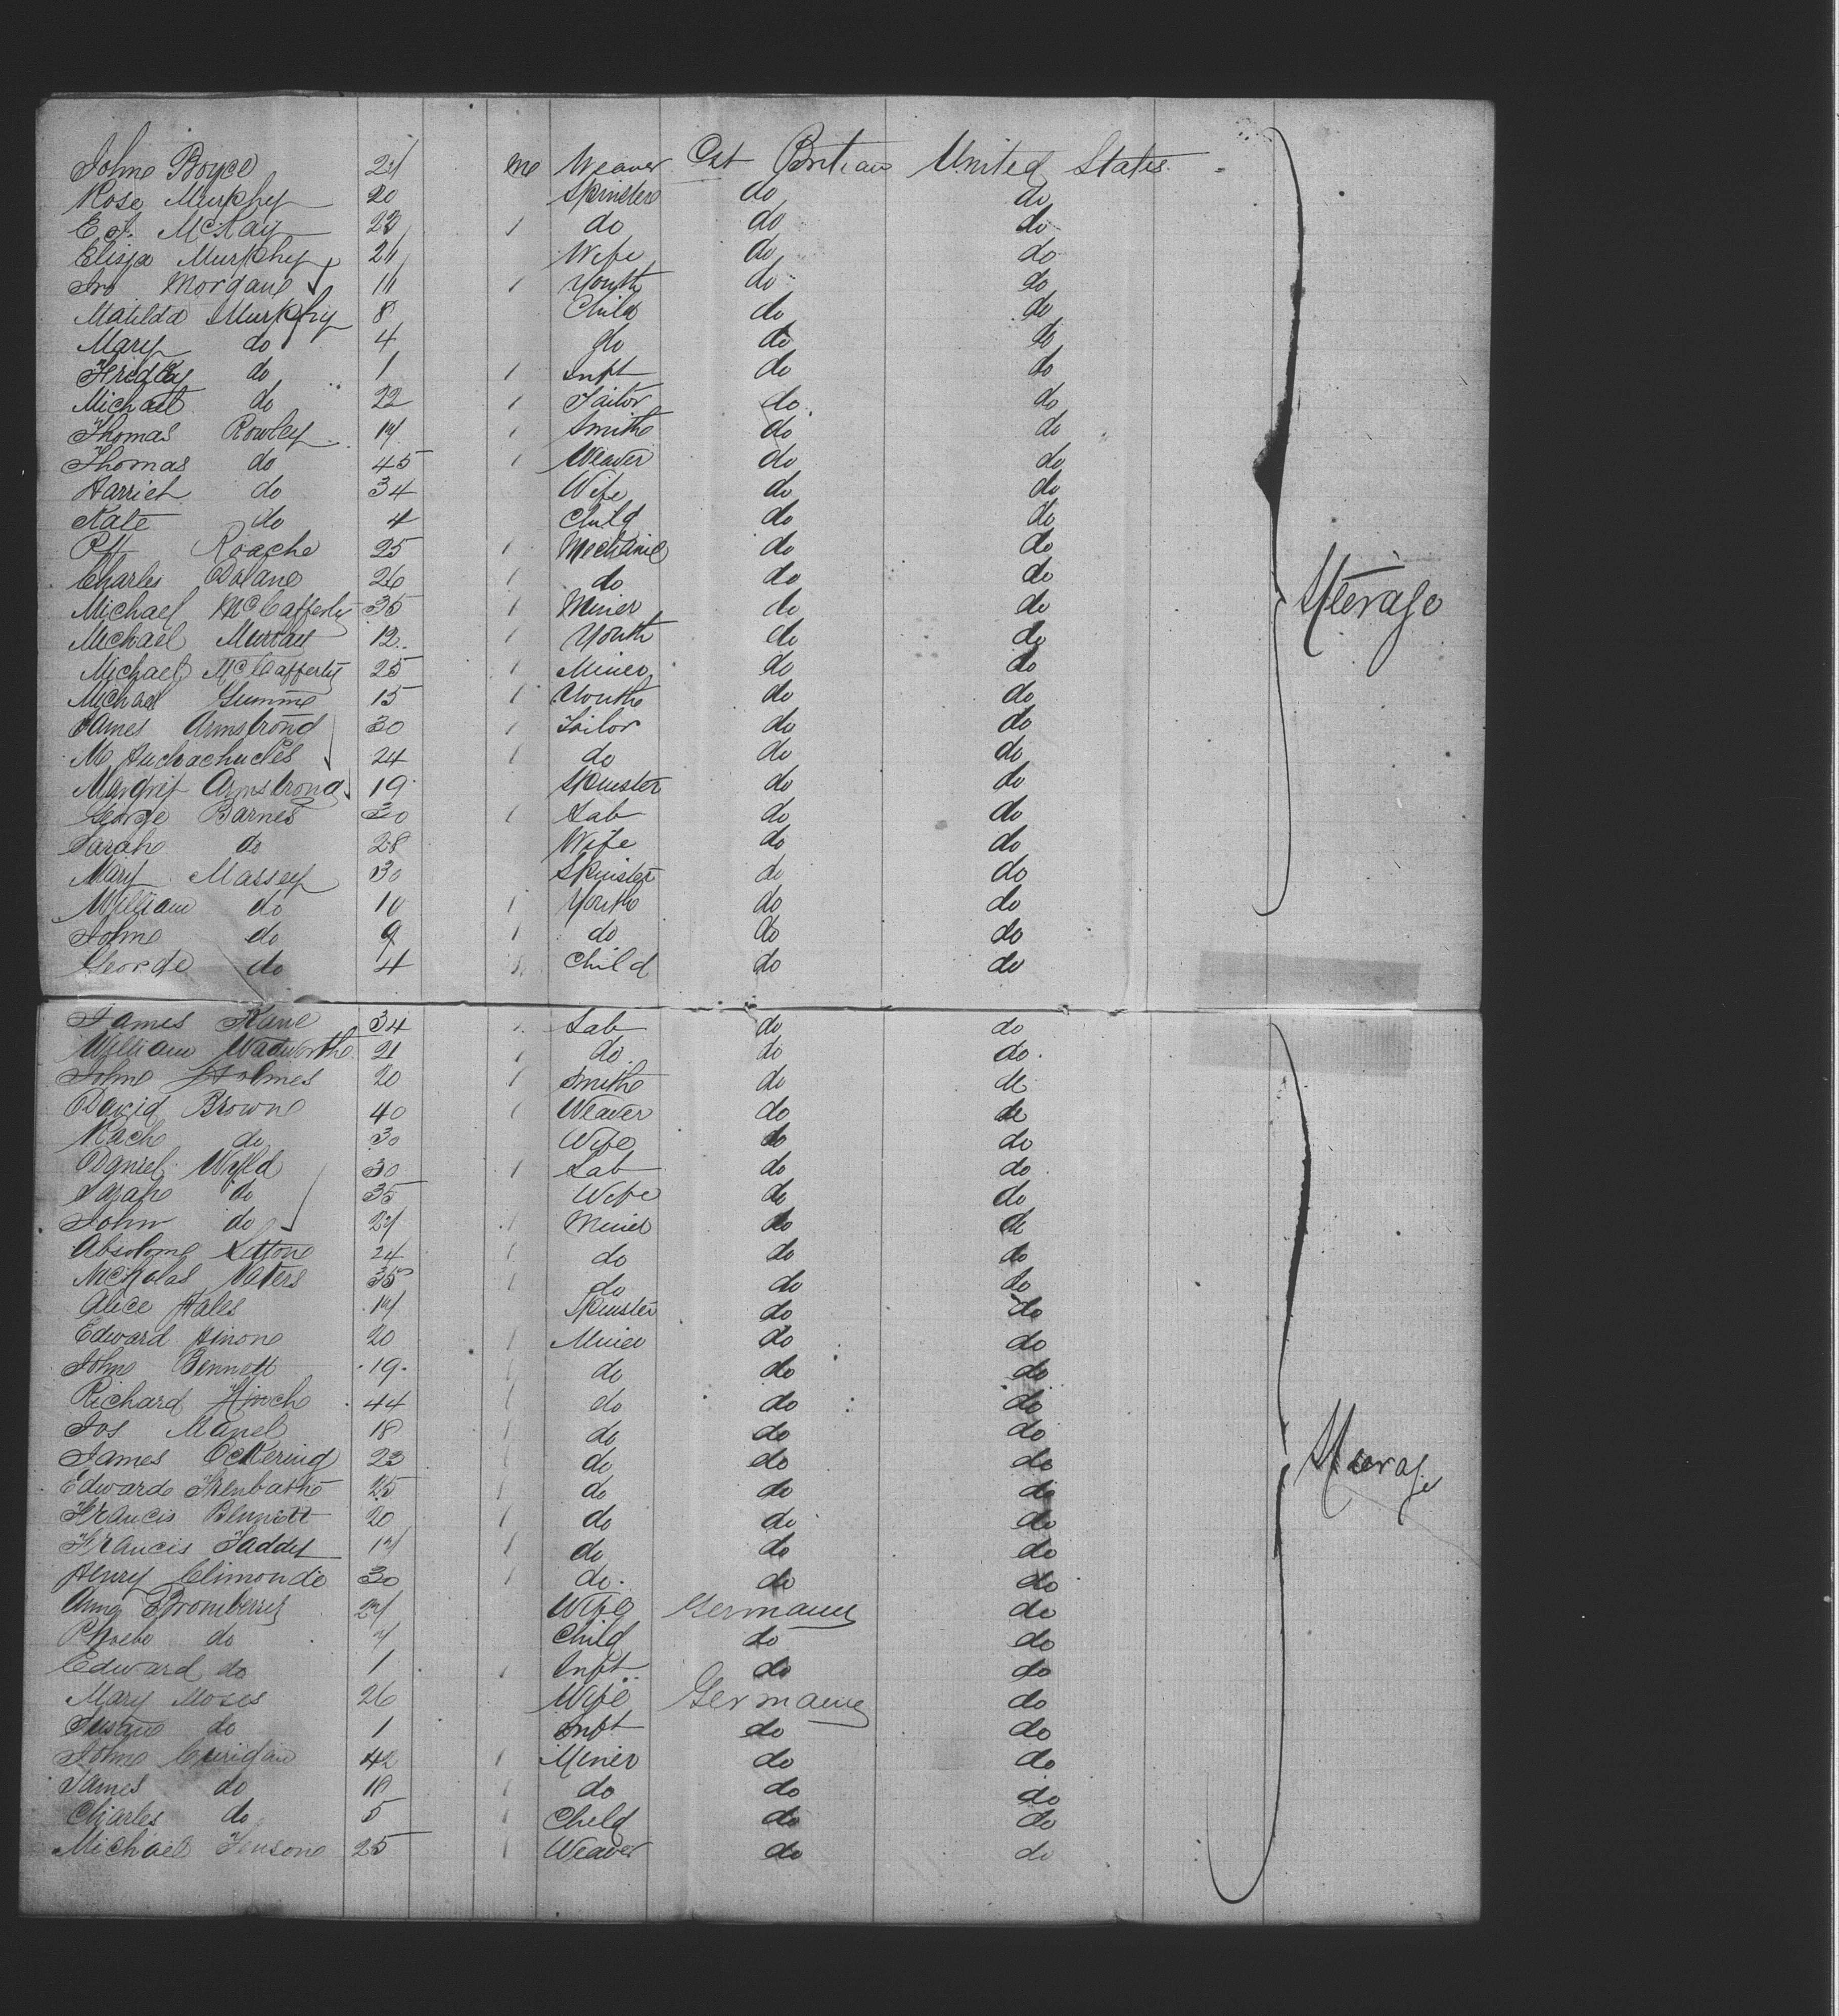 John Boyce 21 me Weaver Gt Britian United States
Rose Murphy 20 Spinster do do
E J. McKay 23 1 do do do
Eliza Murphy 24 Wife do do
Jno Morgan 11 1 Youth do do
Matilda Murphy 8 Child do do
Mary do 4 do do do
Fredky do 1 1 Inft do do
Michael do 22 1 Tailor do do
Thomas Rowley 1 Smith do do
Thomas do 45 1 Weaver do do
Harriet do 34 Wife do do
Kate do 4 Child do do
Roache 25 1 Mechanic do do
Charles Dolane 26 1 do do do
Michael McCafferty 35 1 Miner do do Steerage
Michael Murray 12 1 Youth do do
Michael McCafferty 25 1 Miner do do
Michael 15 1 Youth do do
James Armstrong 30 1 Tailor do do
M 24 1 do do do
Margrit Armstrong 19 Spinster do do
George Barnes 30 1 Lab do do
Sarah do 28 Wife do do
Mary Massey 30 Spinster do do
William do 10 1 Youth do do
John do 9 1 do do do
George do 4 1 Child do do
James Kane 34 1 Lab do do
William Wadworth 21 1 do do do
John Holmes 20 1 Smith do do
David Brown 40 1 Weaver do do
Rach do 30 Wife do do
Daniel Wyld 30 1 Lab do do
Sarah do 35 Wife do do
John do 1 Miner do do
Absolom 24 1 do do do
Nicholas Vaters 35 1 do do do
Alice Hales Spinster do do
Edward Hinone 20 1 Miner do do
John Bennett 19 1 do do do
Richard Hinch 44 1 do do do
Jos Manel 18 1 do do do
James Ockering 23 1 do do do Steerage
Edward Trenbath 25 1 do do do
Francis Bennett 20 1 do do do
Francis Taddy 1 do do do
Henry Climondo 30 1 do do do
Anna Bromberry Wife Germany do
Phoebe do Child do do
Edward do 1 1 Inft do do
Mary Moses 26 Wife Germany do
Susan do 1 Inft do do
John Curigan 42 1 Miner do do
James do 1 do do do
Charles do 5 1 Child do do
Michael 25 1 Weaver do do